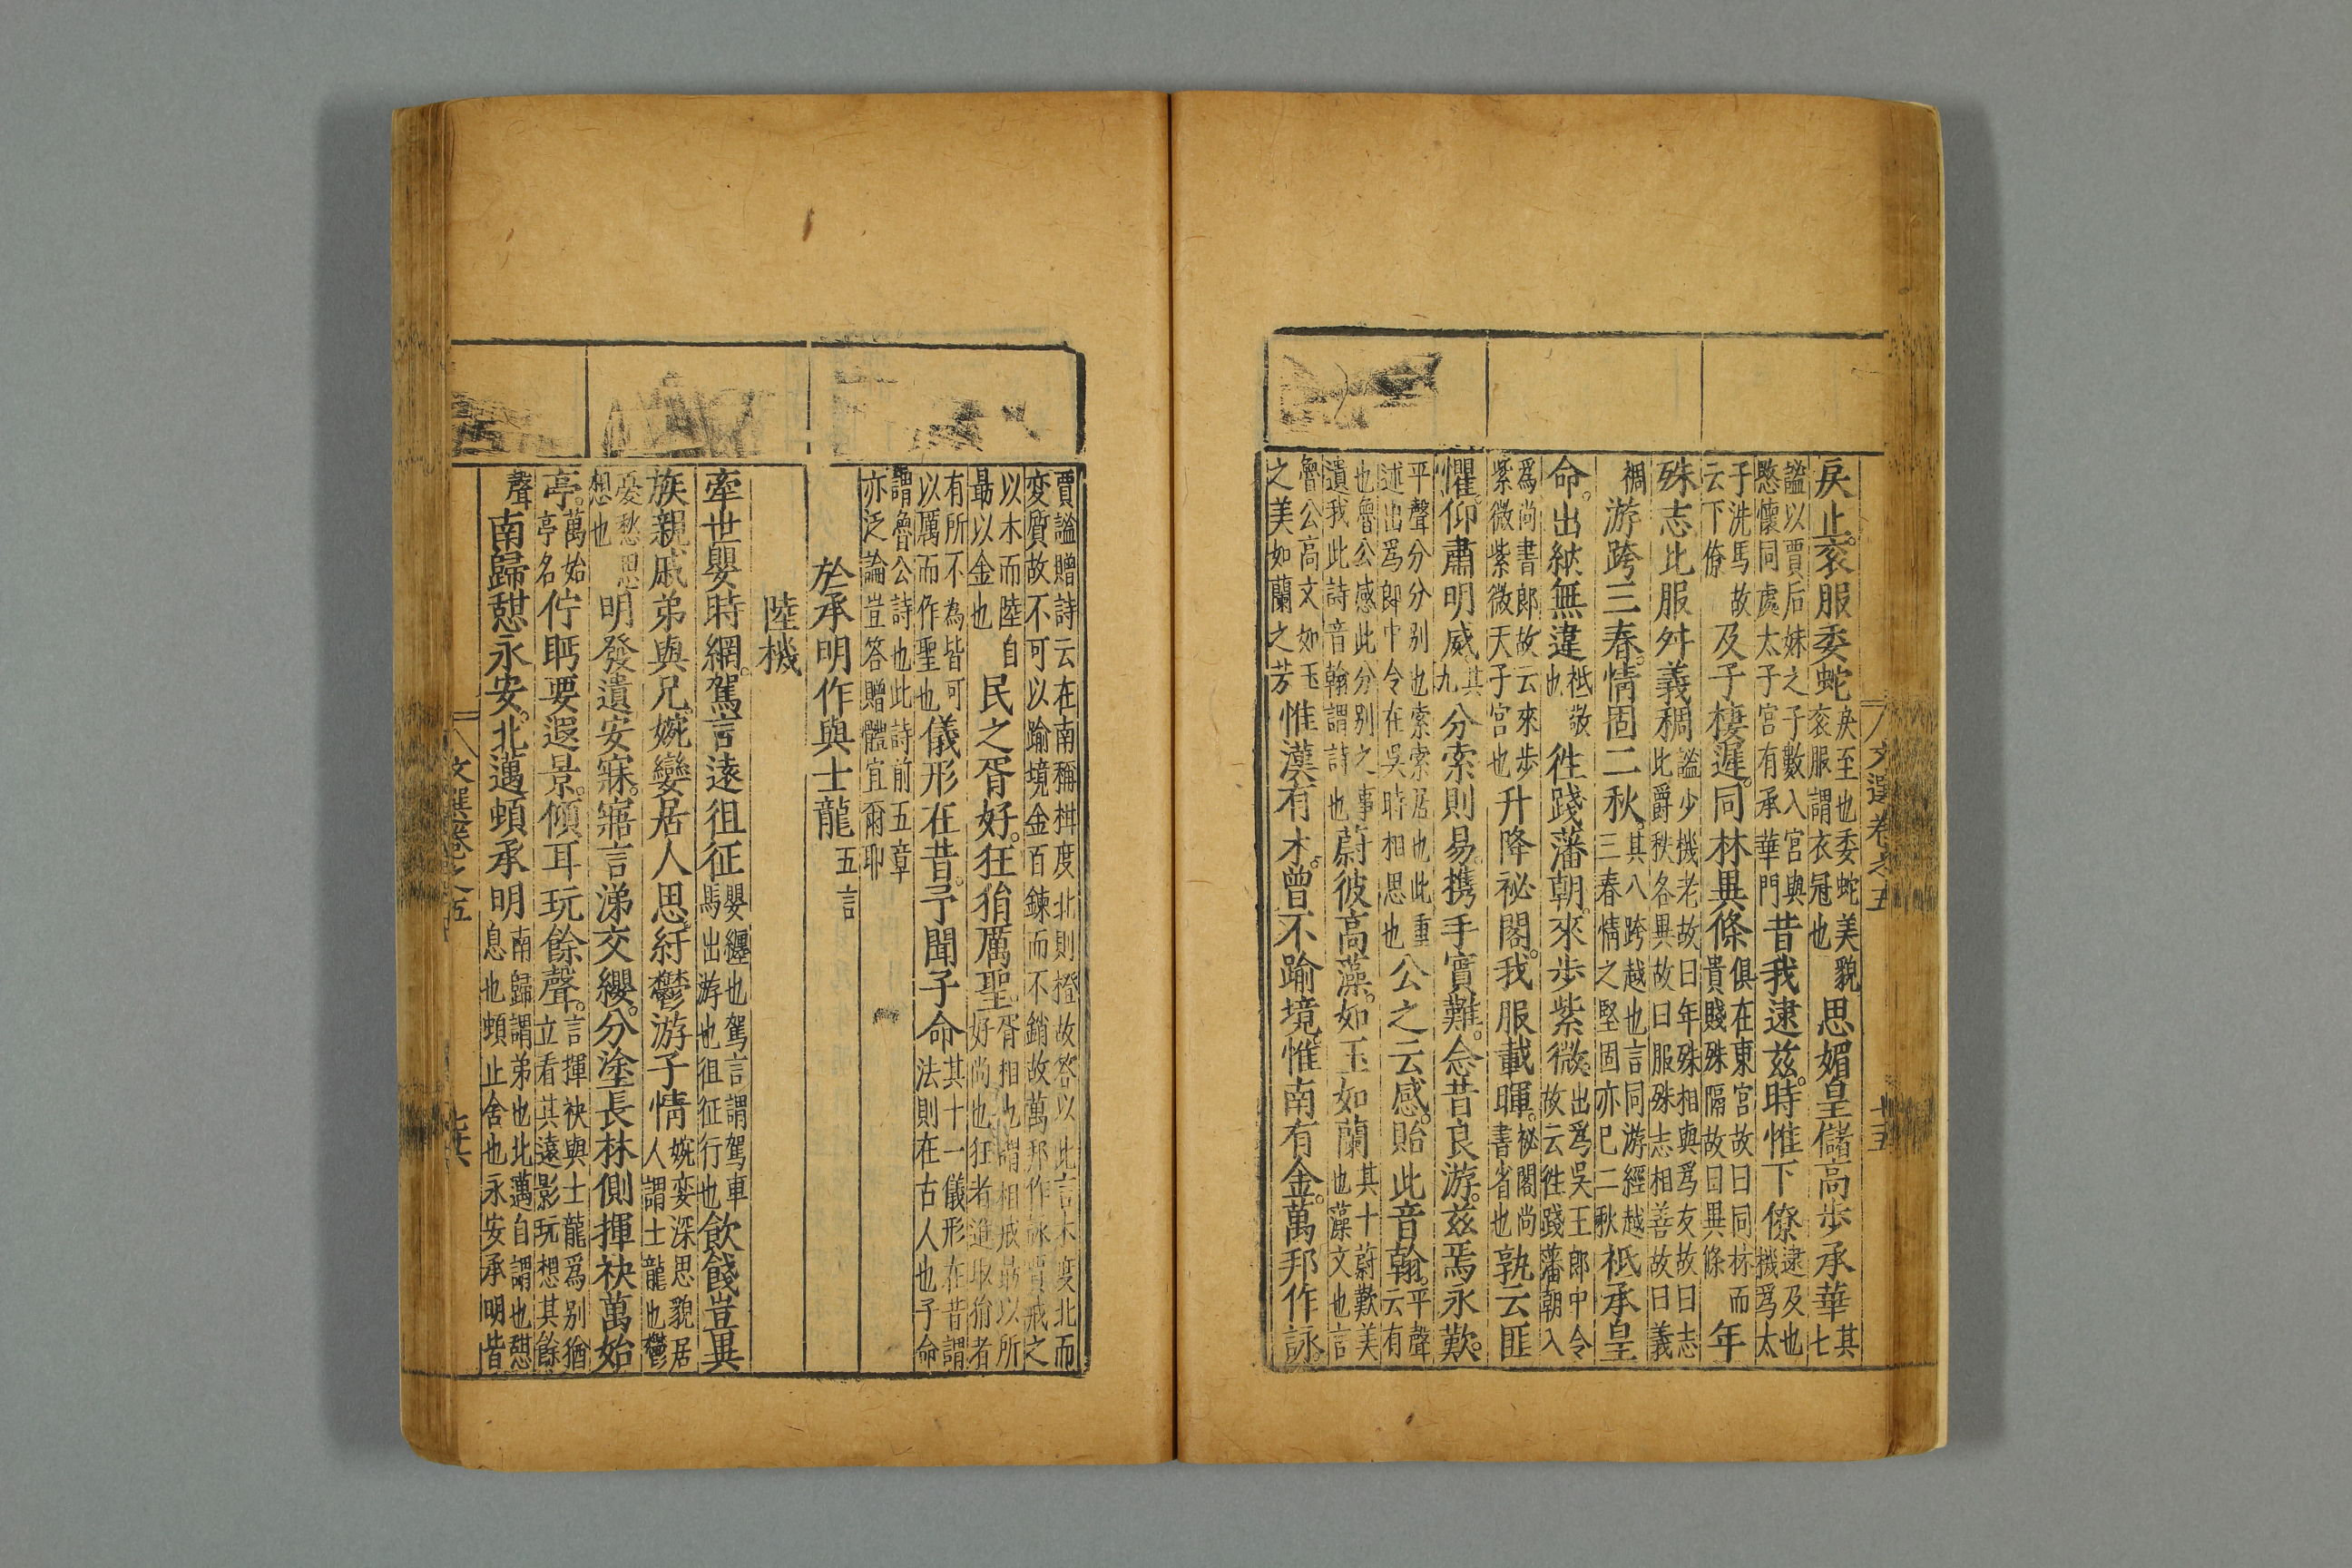 文選卷之五
十五
戾止。衮服委蛇戾至也委蛇美貌衮服謂衣冠也思媚皇儲高步承華其七
謐以賈后妹之子數入宮與愍懷同處太子宮有承華門昔我逮茲。時惟下僚逮及也機爲太
子洗馬故云下僚及子棲遲。同林異條俱在東宮故曰同林而貴賤殊隔故曰異條年
殊志比服舛義稠謐少機老故曰年殊相與爲友故曰志比爵秩各異故曰服殊志相善故曰義
稠游跨三春。情固二秋。其八跨越也言同游經越三春情之堅固亦已二秋祗承皇
命。出納無違祗敬也往踐藩朝。來步紫微。出爲吳王郎中令故云往踐藩朝入
爲尚書郎故云來步紫微紫微天子宮也升降祕閣。我服載暉。秘閣尚書省也孰云匪
懼。仰肅明威。其九分索則易。携手實難。念昔良游。茲焉永歎。
平聲分分别也索索居也此重述出爲郎中令在吳時相思也公之云感。貽此音翰。平聲云有
也魯公感此分别之事遺我此詩音翰謂詩也蔚彼高藻。如玉如蘭其十蔚歎美也藻文也言
魯公高文如玉之美如蘭之芳惟漢有木。曾不踰境。惟南有金。萬邦作詠。
賈謐贈詩云在南稱柑度北則橙故答以此言木度北而変質故不可以踰境金百鍊而不銷故萬邦作詠賈戒之
以木而陸自最以金也民之胥好。狂狷厲聖胥相也謂相戒最以所好尚也狂者進取狷者
有所不為皆可以厲而作聖也儀形在昔。予聞子命其十一儀形在昔謂法則在古人也子命
謂魯公詩也此詩前五章亦泛論豈答贈體宜爾耶
於承明作與士龍五言
陸機
牽世嬰時網。駕言遠徂征嬰纏也駕言謂駕車馬出游也徂征行也飲餞豈異
族親戚弟與兄。婉孌居人思。紆鬱游子情婉孌深思貌居人謂士龍也鬱
憂愁思想也明發遺安寐。寤言涕交纓。分塗長林側揮袂萬始
亭。萬始亭名佇眄要遐景。傾耳玩餘聲。言揮袂與士龍爲别猶立看其遠影玩想其餘
聲南歸憩永安。北邁頓承明南歸謂弟也北邁自謂也憩息也頓止舍也永安承明皆
文選卷之五
十六